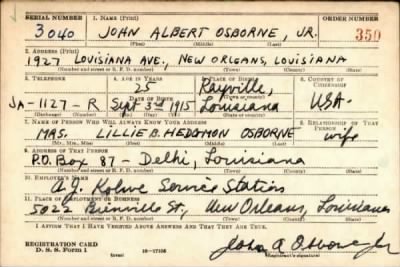 SERIAL NUMBER 1. NAME (Print) ORDER NUMBER
3040 JOHN ALBERT OSBORNE, JR. 350
(First) (Middle) (Last)
2. ADDRESS (Print)
1927 LOUISIANA AVE., NEW ORLEANS, LOUISIANA
(Number and street or R. F. D. number) (Town) (County) (State)
3. TELEPHONE 4. AGE IN YEARS 5. PLACE OF BIRTH 6. COUNTRY OF CITIZENSHIP
25 Rayville,
DATE OF BIRTH (Town or county)
JA-1127-R Sept 3rd 1915 Louisiana USA.
(Exchange) (Number) (Mo.) (Day) (Yr.) (State or country)
7. NAME OF PERSON WHO WILL ALWAYS KNOW YOUR ADDRESS 8. RELATIONSHIP OF THAT PERSON
MRS. LILLIE B. OSBORNE wife
(Mr., Mrs., Miss) (First) (Middle) (Last)
9. ADDRESS OF THAT PERSON
P.O. Box 87 - Delhi, Louisiana
(Number and street or R. F. D. number) (Town) (County) (State)
10. EMPLOYER'S NAME
Service Station
11. PLACE OF EMPLOYMENT OR BUSINESS
5022 Bienville St., New Orleans, Louisiana
(Number and street or R. F. D. number) (Town) (County) (State)
I AFFIRM THAT I HAVE VERIFIED ABOVE ANSWERS AND THAT THEY ARE TRUE.
REGISTRATION CARD
D. S. S. Form 1 John A Osborne Jr
(Registrant's signature)